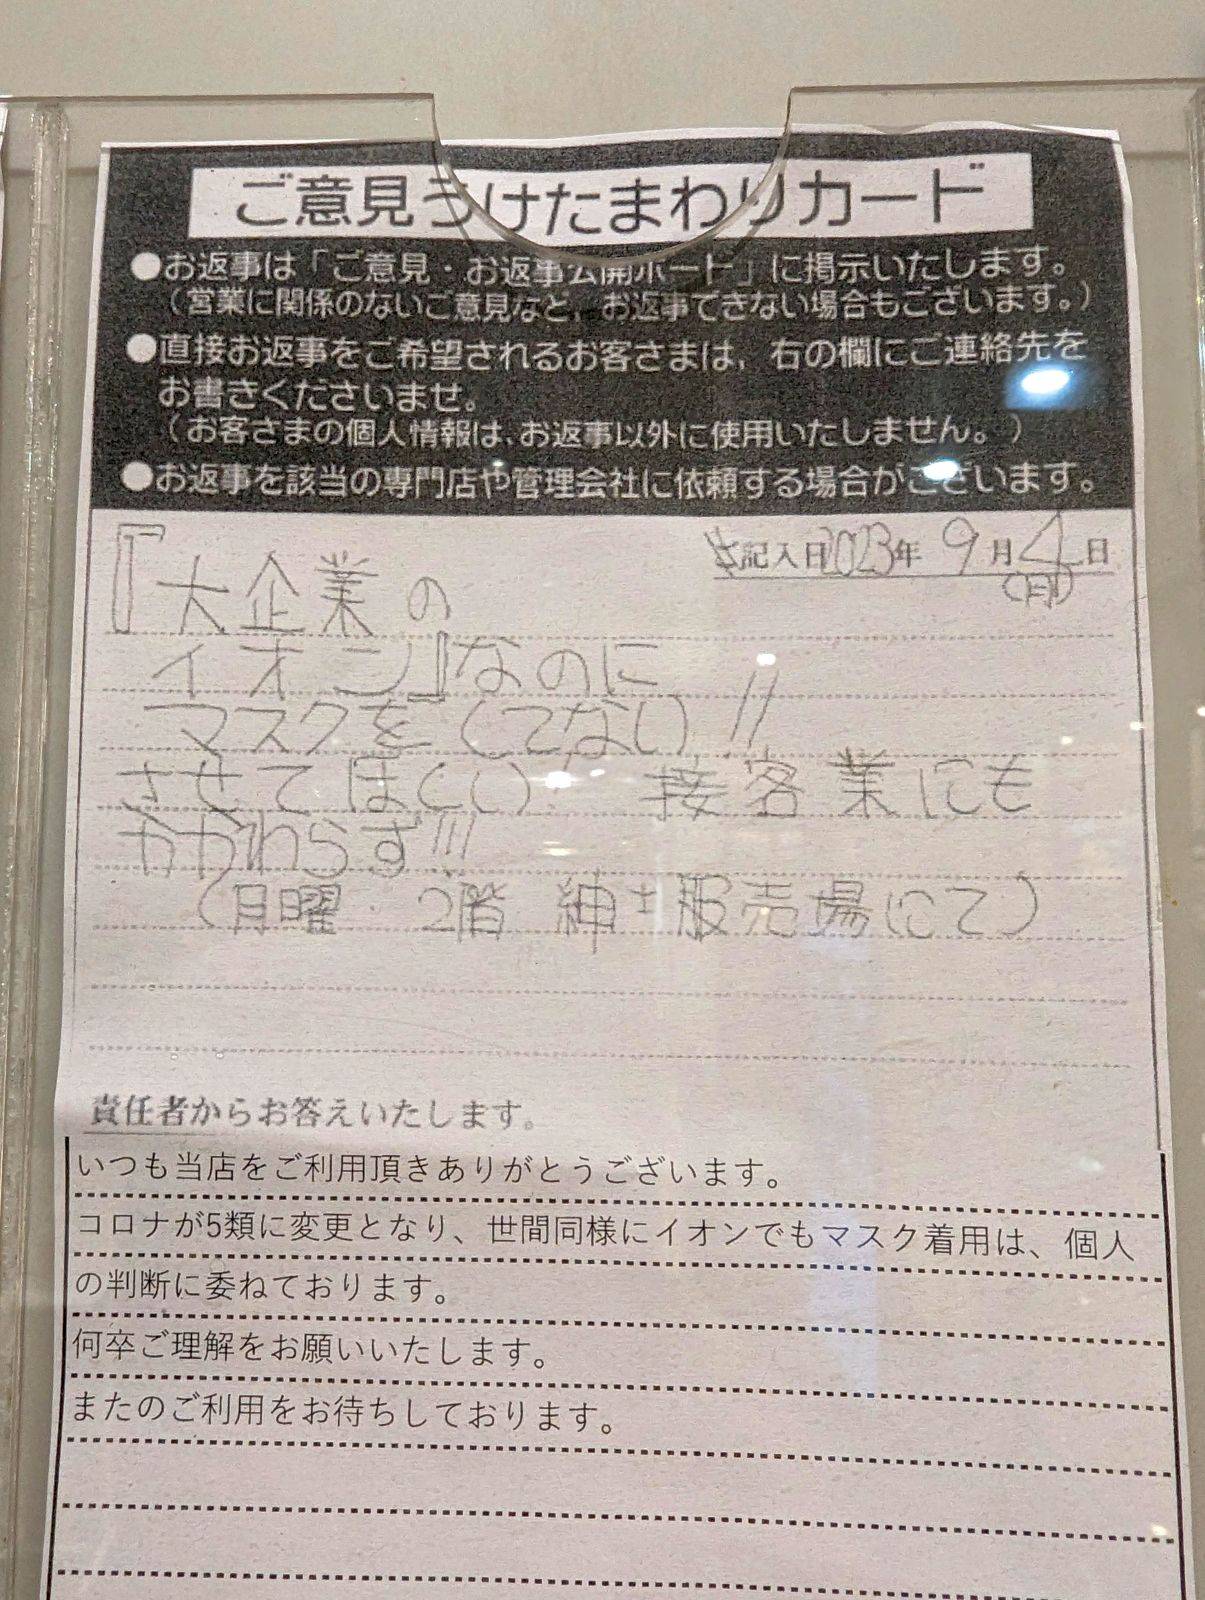 ご意見うけたまわりカード
●お返事は「ご意見・お返事公開ボード」に掲示いたします。
（営業に関係のないご意見など、お返事できない場合もございます。）
●直接お返事をご希望されるお客さまは、右の欄にご連絡先を
お書きくださいませ。
（お客さまの個人情報は、お返事以外に使用いたしません。）
●お返事を該当の専門店や管理会社に依頼する場合がございます。
記入日2023年 9月4日
(月)
『大企業の
イオン』なのに
マスクをしてない!!
させてほしい! 接客業にも
かかわらず!!!
(月曜 2階 紳士服売場にて)
責任者からお答えいたします。
いつも当店をご利用頂きありがとうございます。
コロナが5類に変更となり、世間同様にイオンでもマスク着用は、個人
の判断に委ねております。
何卒ご理解をお願いいたします。
またのご利用をお待ちしております。